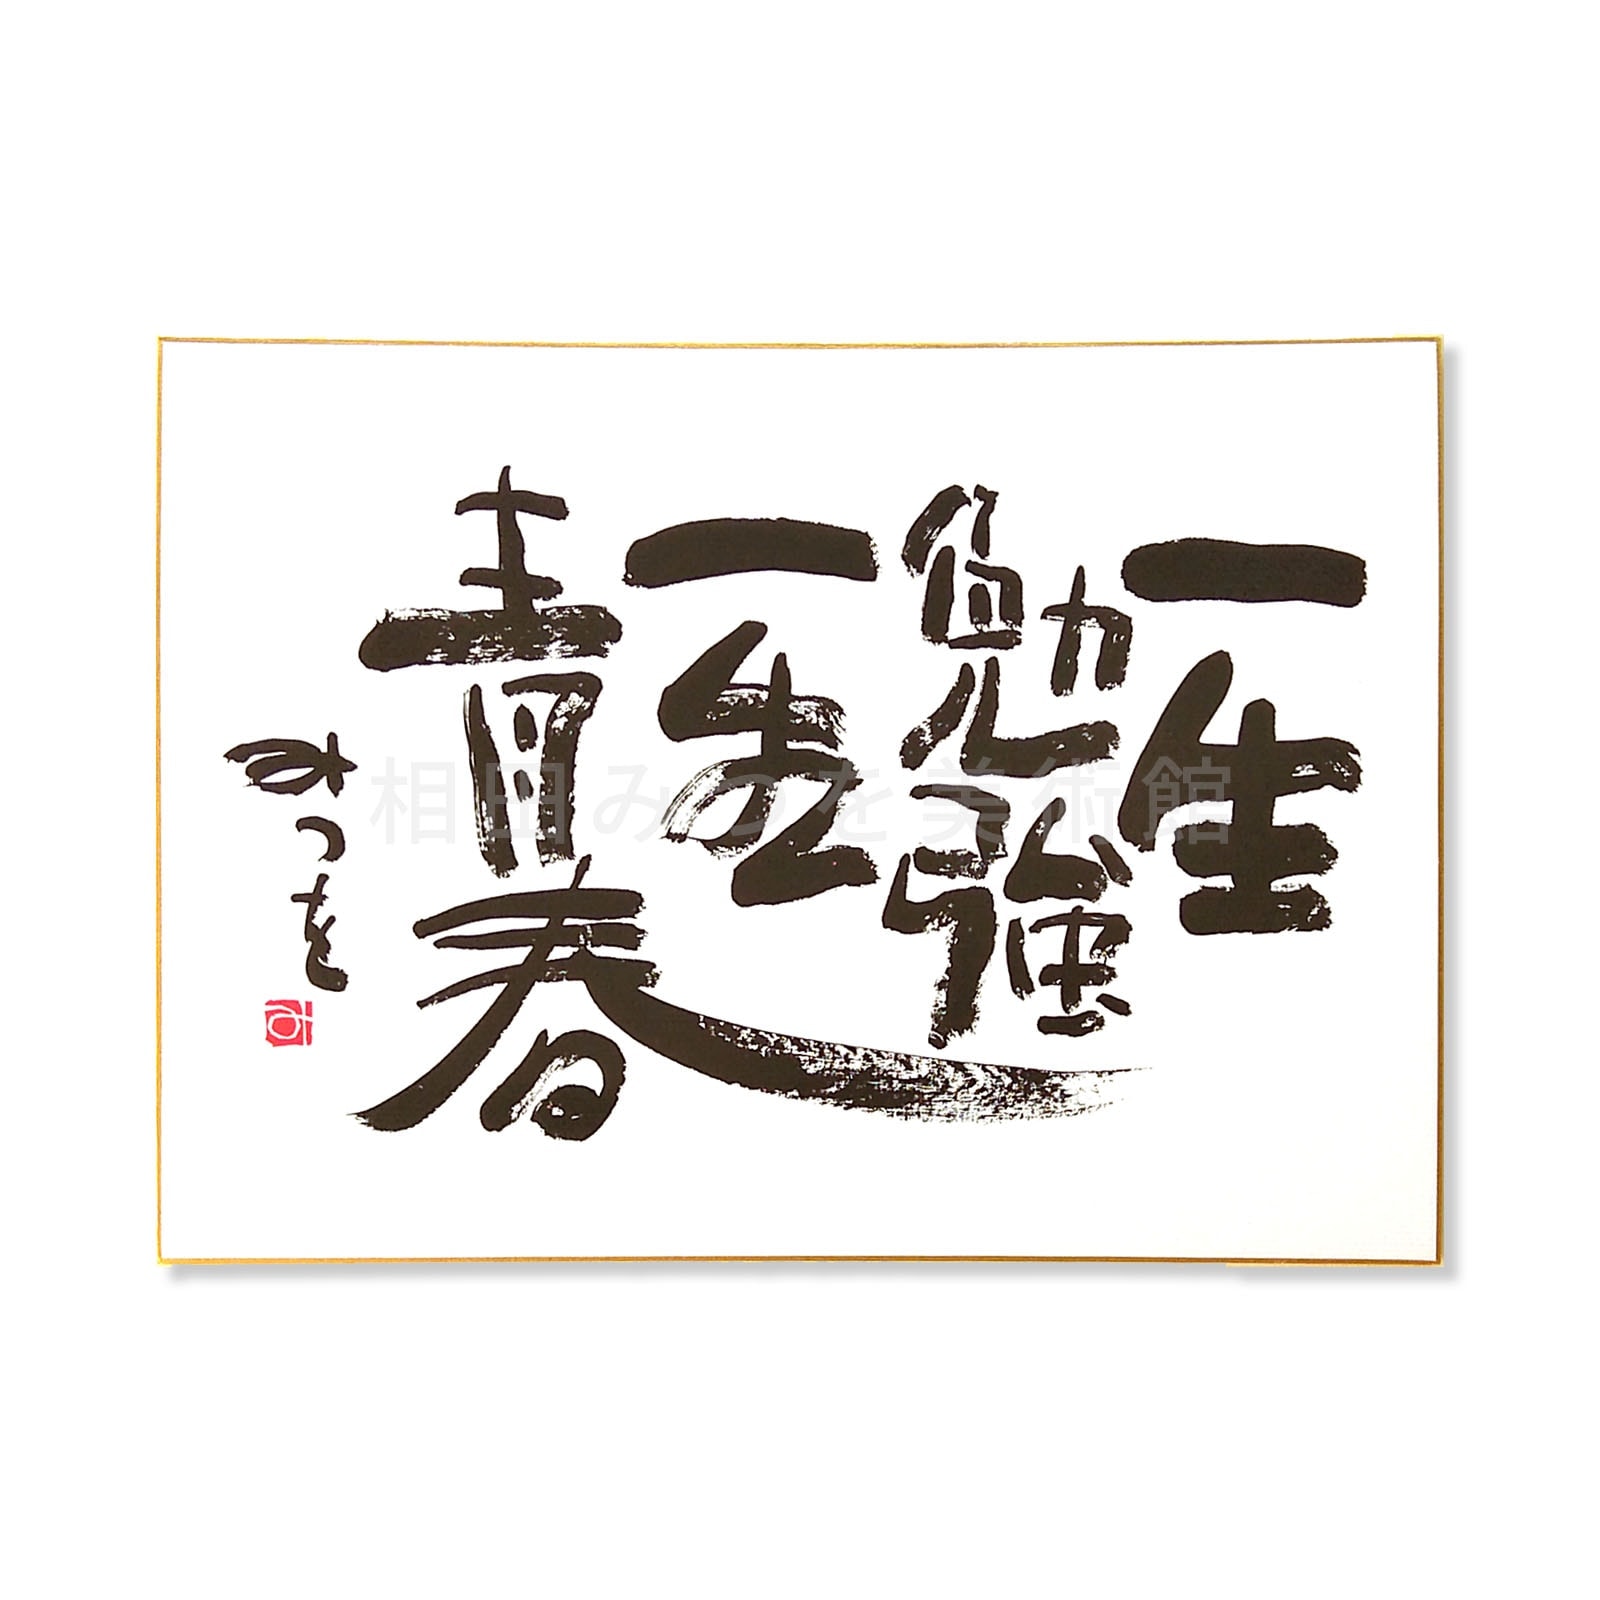 一生
勉強
一生
青春
みつを
み
相田みつを美術館